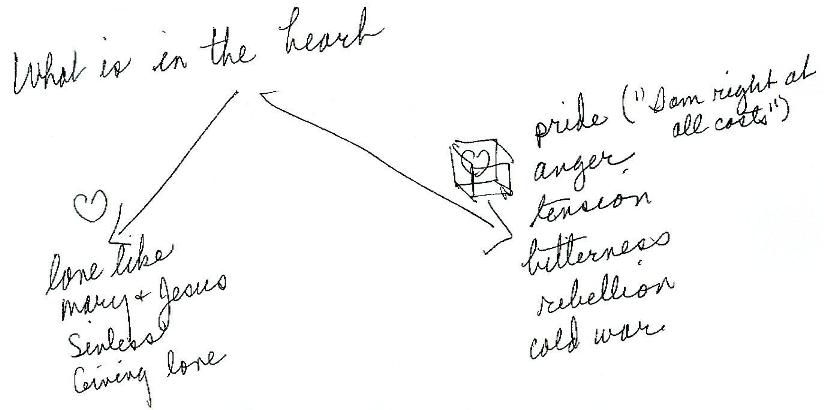 What is in the heart
love like
Mary + Jesus
Sinless
Giving love
pride ("I am right at
all costs")
anger
tension
bitterness
rebellion
cold war